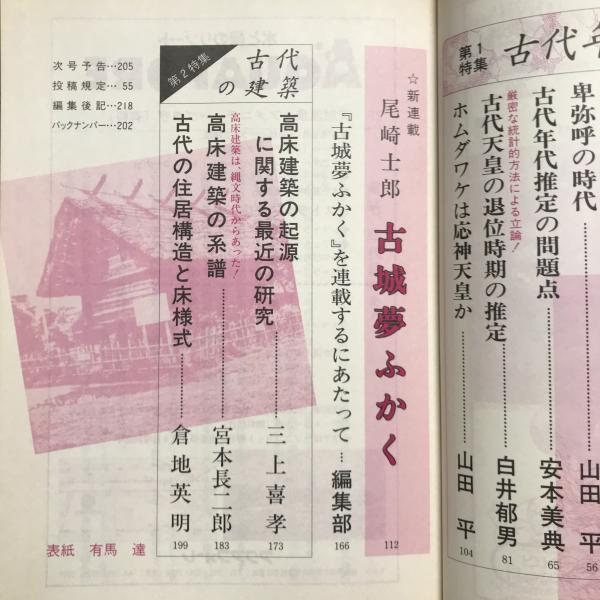 第1特集
古代年
卑弥呼の時代……山田 平 56
古代年代推定の問題点……安本美典 65
厳密な統計的方法による立論！
古代天皇の退位時期の推定……白井郁男 81
ホムダワケは応神天皇か……山田 平 104
☆新連載
尾崎士郎 古城夢ふかく 112
『古城夢ふかく』を連載するにあたって…編集部 166
第2特集
古代の建築
高床建築の起源
に関する最近の研究……三上喜孝 173
高床建築は、縄文時代からあった！
高床建築の系譜……宮本長二郎 183
古代の住居構造と床様式……倉地英明 199
次号予告…205
投稿規定…55
編集後記…218
バックナンバー…202
表紙 有馬 達